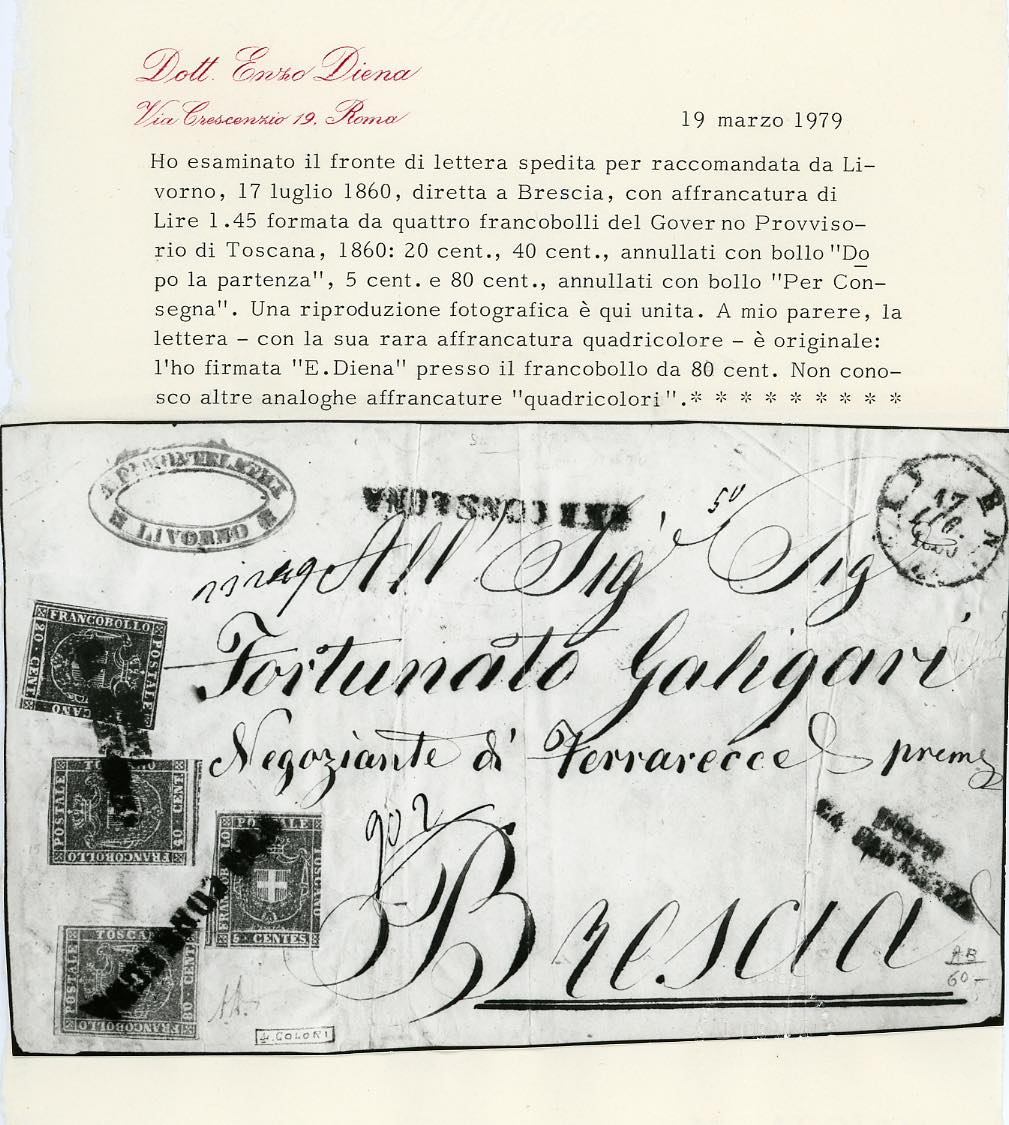 Dott. Enzo Diena
Via Crescenzio 19. Roma
19 marzo 1979
Ho esaminato il fronte di lettera spedita per raccomandata da Li-
vorno, 17 luglio 1860, diretta a Brescia, con affrancatura di
Lire 1.45 formata da quattro francobolli del Governo Provviso-
rio di Toscana, 1860: 20 cent., 40 cent., annullati con bollo "Do
po la partenza", 5 cent. e 80 cent., annullati con bollo "Per Con-
segna". Una riproduzione fotografica è qui unita. A mio parere, la
lettera - con la sua rara affrancatura quadricolore - è originale:
l'ho firmata "E.Diena" presso il francobollo da 80 cent. Non cono-
sco altre analoghe affrancature "quadricolori".* * * * * * * * *
LIVORNO
PER CONSEGNA
50
17
LUG.
1860
All' Sig Sig
FRANCOBOLLO
POSTALE
20 CENT
Fortunato Galigari
Negoziante di Ferrarecce
POSTALE
FRANCOBOLLO
CENT 40
902
POSTALE
TOSCANO
5 CENTES
DOPO
LA PARTENZA
Brescia
TOSCA
POSTALE
80 CENT
FRANCOBOLLO
PER CONSEGNA
AB
60-
4 COLORI